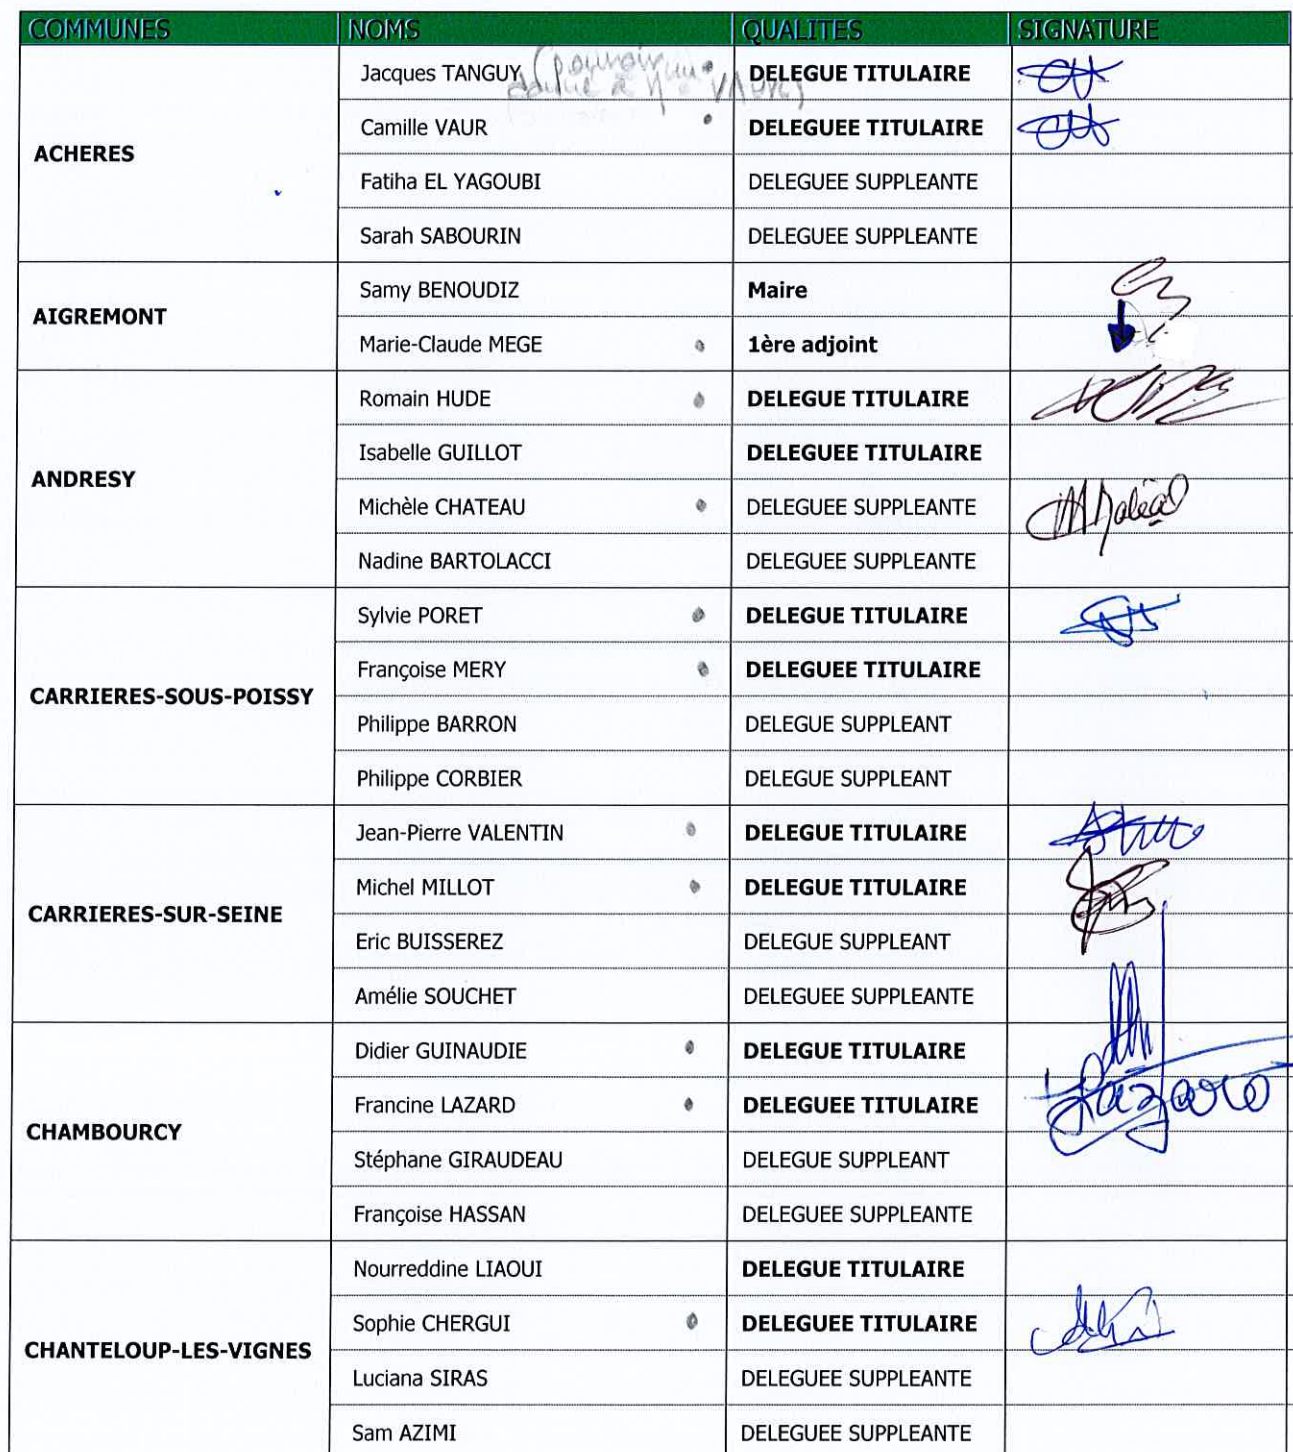 COMMUNES NOMS QUALITES SIGNATURE
ACHERES
Jacques TANGUY (pouvoir DELEGUE TITULAIRE
Camille VAUR DELEGUEE TITULAIRE
Fatiha EL YAGOUBI DELEGUEE SUPPLEANTE
Sarah SABOURIN DELEGUEE SUPPLEANTE
AIGREMONT
Samy BENOUDIZ Maire
Marie-Claude MEGE 1ère adjoint
ANDRESY
Romain HUDE DELEGUE TITULAIRE
Isabelle GUILLOT DELEGUEE TITULAIRE
Michèle CHATEAU DELEGUEE SUPPLEANTE
Nadine BARTOLACCI DELEGUEE SUPPLEANTE
CARRIERES-SOUS-POISSY
Sylvie PORET DELEGUE TITULAIRE
Françoise MERY DELEGUEE TITULAIRE
Philippe BARRON DELEGUE SUPPLEANT
Philippe CORBIER DELEGUE SUPPLEANT
CARRIERES-SUR-SEINE
Jean-Pierre VALENTIN DELEGUE TITULAIRE
Michel MILLOT DELEGUE TITULAIRE
Eric BUISSEREZ DELEGUE SUPPLEANT
Amélie SOUCHET DELEGUEE SUPPLEANTE
CHAMBOURCY
Didier GUINAUDIE DELEGUE TITULAIRE
Francine LAZARD DELEGUEE TITULAIRE
Stéphane GIRAUDEAU DELEGUE SUPPLEANT
Françoise HASSAN DELEGUEE SUPPLEANTE
CHANTELOUP-LES-VIGNES
Nourreddine LIAOUI DELEGUE TITULAIRE
Sophie CHERGUI DELEGUEE TITULAIRE
Luciana SIRAS DELEGUEE SUPPLEANTE
Sam AZIMI DELEGUEE SUPPLEANTE